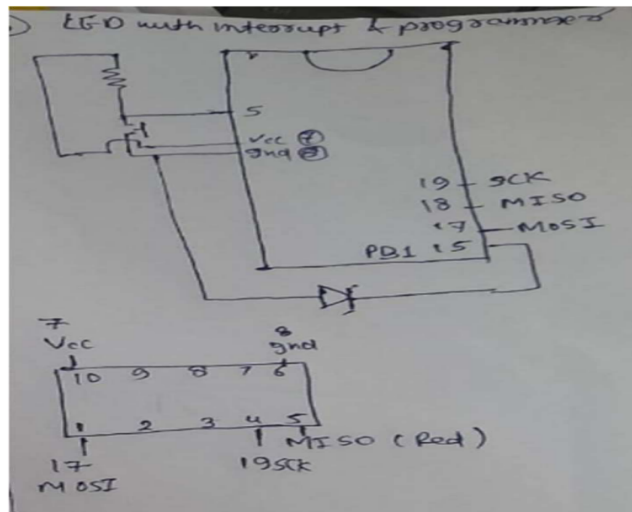 LED with interrupt & programmer
5
Vcc 7
gnd 8
19 SCK
18 MISO
17 MOSI
PB1 15
7 8
Vcc gnd
10 9 8 7 6
1 2 3 4 5
MISO (Red)
17 19 SCK
MOSI